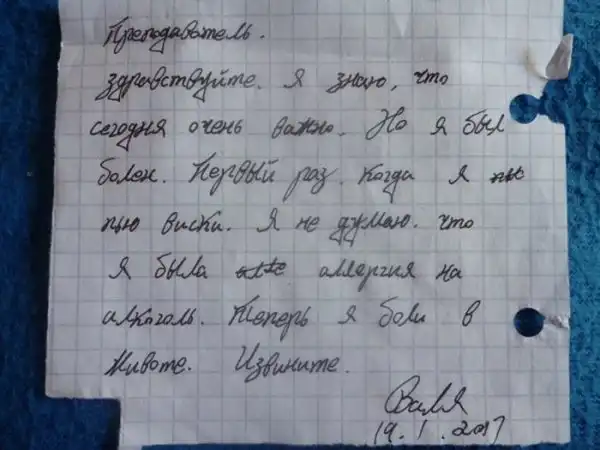 Преподаватель.
Здравствуйте. Я знаю, что
сегодня очень важно. Но я был
болен. Первый раз. Когда я
пью виски. Я не думаю. что
я была аллергия на
алкоголь. Теперь я боли в
животе. Извините.
Валя
19.1.2017